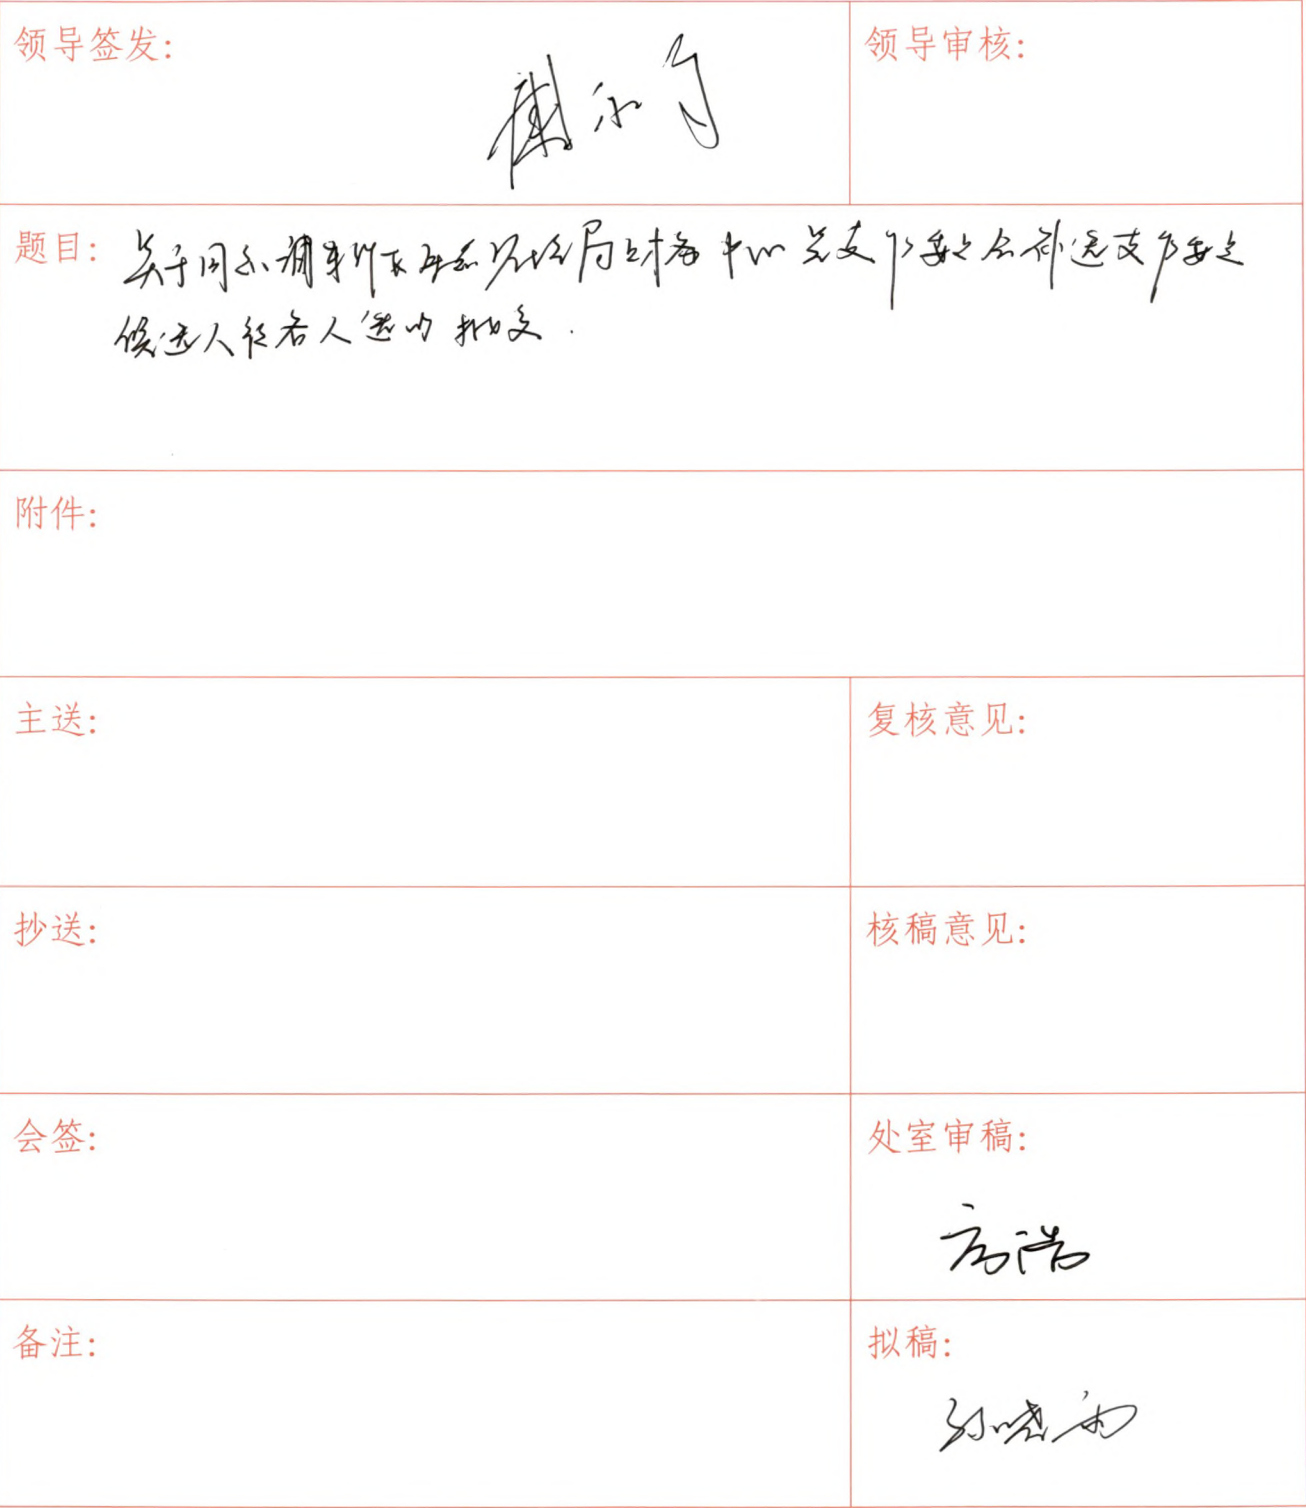 领导签发:
领导审核:
题目: 关于同意调 局财务中心党支部委员会补选支部委员
候选人 人选的批复.
附件:
主送:
复核意见:
抄送:
核稿意见:
会签:
处室审稿:
高浩
备注:
拟稿: